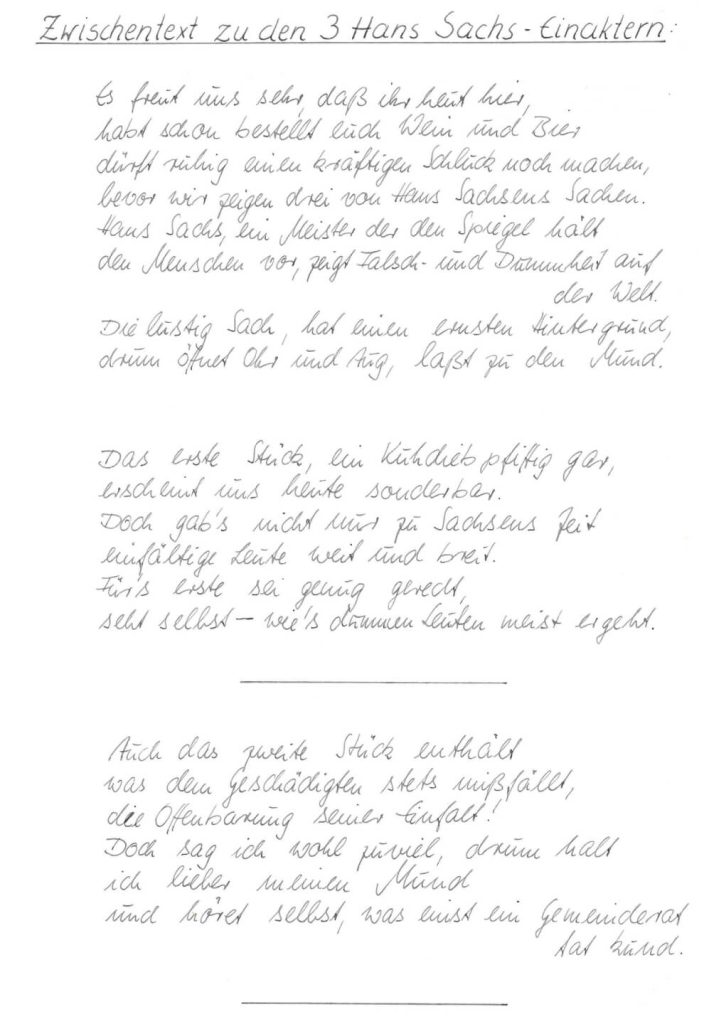 Zwischentext zu den 3 Hans Sachs-Einaktern:
Es freut uns sehr, daß ihr heut hier,
habt schon bestellt euch Wein und Bier
dürft ruhig einen kräftigen Schluck noch machen,
bevor wir zeigen drei von Hans Sachsens Sachen.
Hans Sachs, ein Meister der den Spiegel hält
den Menschen vor, zeigt Falsch- und Dummheit auf
der Welt.
Die lustig Sach, hat einen ernsten Hintergrund,
drum öffnet Ohr und Aug, laßt zu den Mund.
Das erste Stück, ein Kuhdieb pfiffig gar,
erscheint uns heute sonderbar.
Doch gab's nicht nur zu Sachsens Zeit
einfältige Leute weit und breit.
Für's erste sei genug geredt,
seht selbst – wie's dummen Leuten meist ergeht.
Auch das zweite Stück enthält
was dem Geschädigten stets mißfällt,
die Offenbarung seiner Einfalt!
Doch sag ich wohl zuviel, drum halt
ich lieber meinen Mund
und höret selbst, was einst ein Gemeinderat
tat kund.